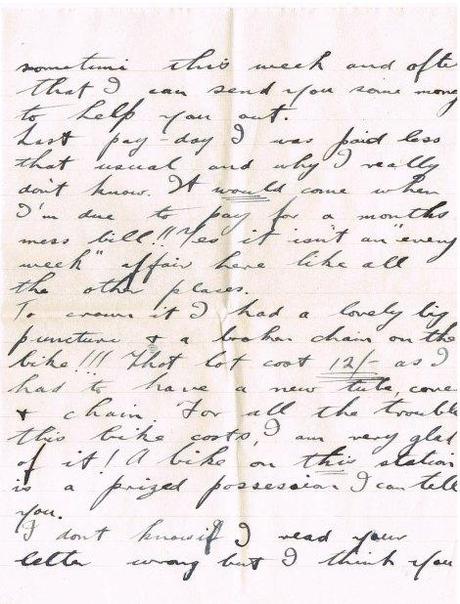 sometime this week and after
that I can send you some money
to help you out.
Last pay-day I was paid less
that usual and why I really
don't know. It would come when
I'm due to pay for a months
mess bill!! Yes it isn't an "every
week" affair here like all
the other places.
To crown it I had a lovely big
puncture & a broken chain on the
bike!!! That lot cost 12/- as I
had to have a new tube, cover
& chain. For all the trouble
this bike costs, I am very glad
of it! A bike on this station
is a prized possession I can tell
you.
I don't know if I read your
letter wrong but I think you